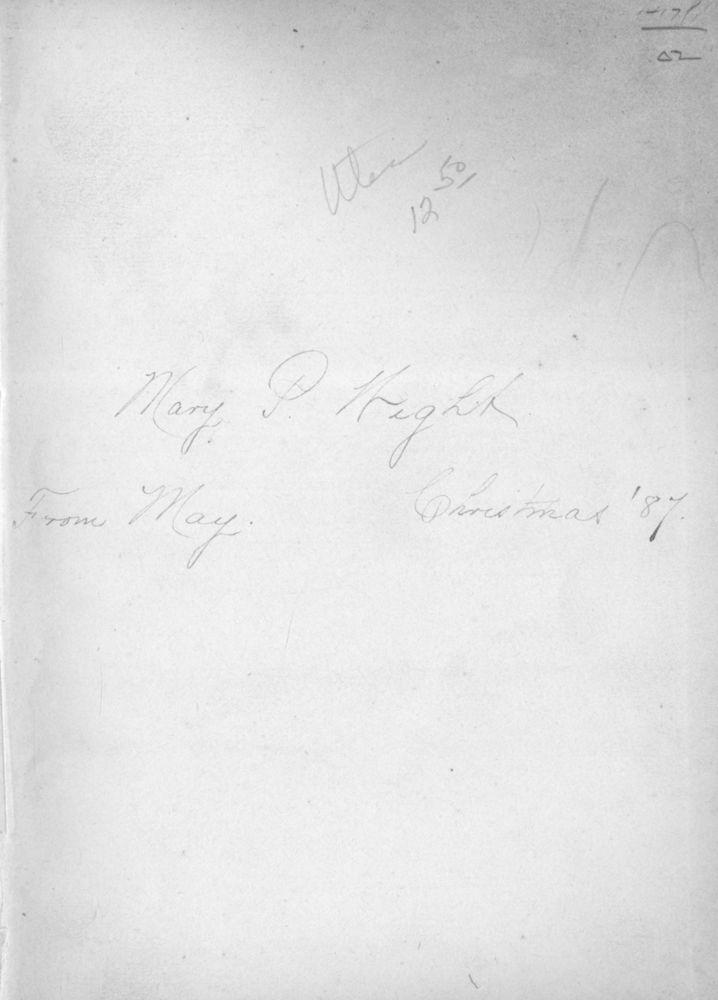 12 50
Mary P. Hight
From May. Christmas '87.